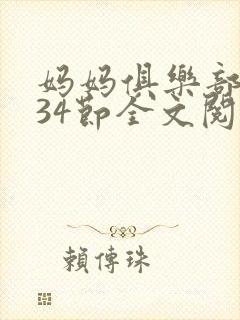 妈妈俱樂部
34節全文閱
賴傳珠